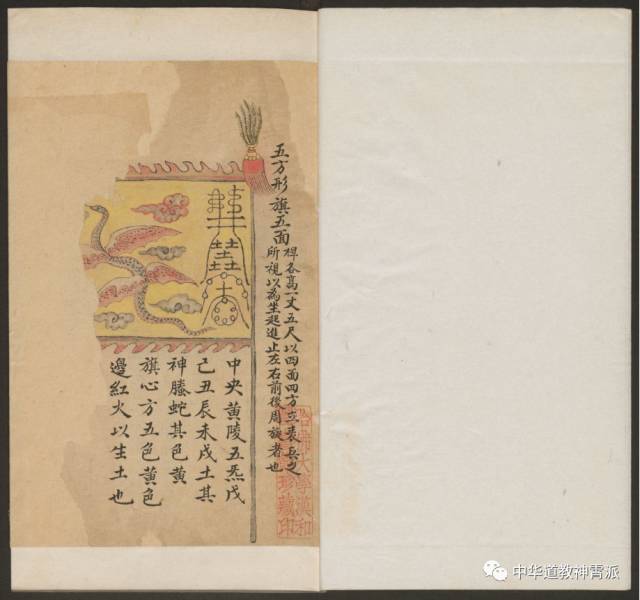 五方形旗五面
桿各高一丈五尺以四面四方立表兵之
所視以為坐起進止左右前後周旋者也
中央黄陵五炁戊
己丑辰未戌土其
神螣蛇其色黄
旗心方五色黄色
邊紅火以生土也
哈佛大學漢和
珍藏印
中华道教神霄派